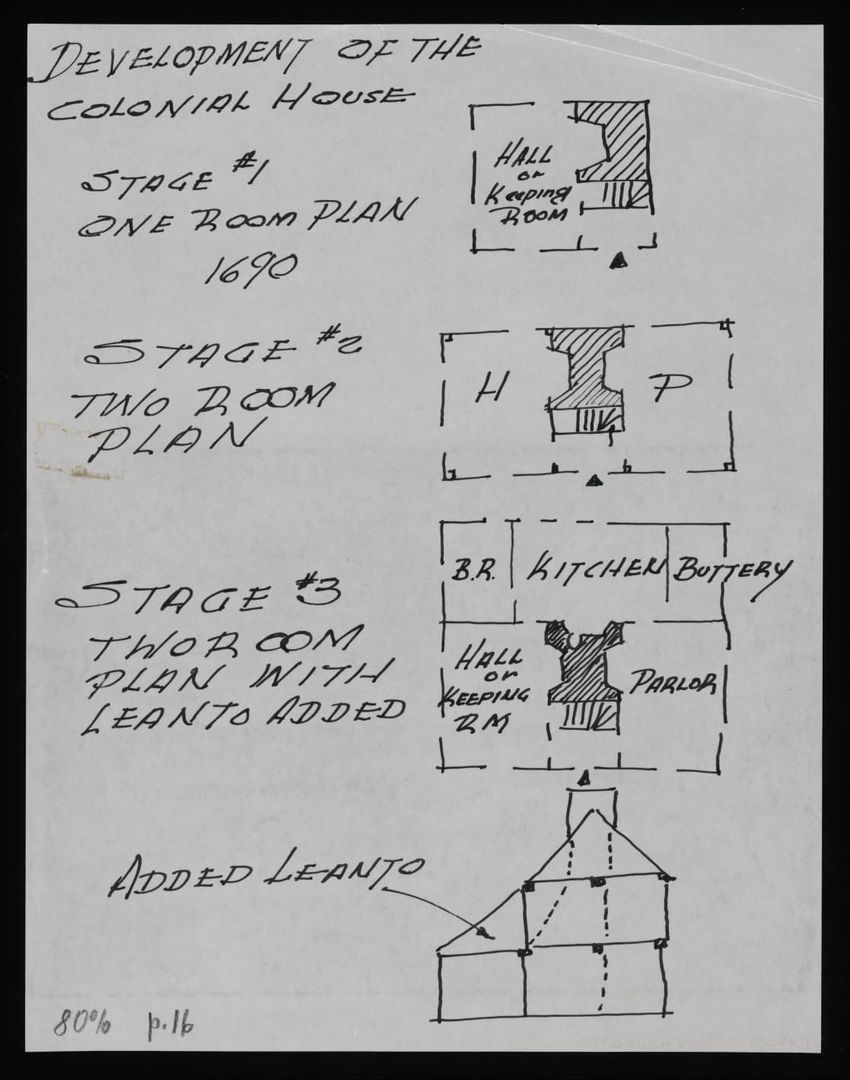 DEVELOPMENT OF THE
COLONIAL HOUSE
STAGE #1
ONE ROOM PLAN
1690
HALL
or
Keeping
ROOM
STAGE #2
TWO ROOM
PLAN
H P
STAGE #3
TWO ROOM
PLAN WITH
LEANTO ADDED
B.R. KITCHEN BUTTERY
HALL
or
KEEPING
RM
PARLOR
ADDED LEANTO
80% p.16